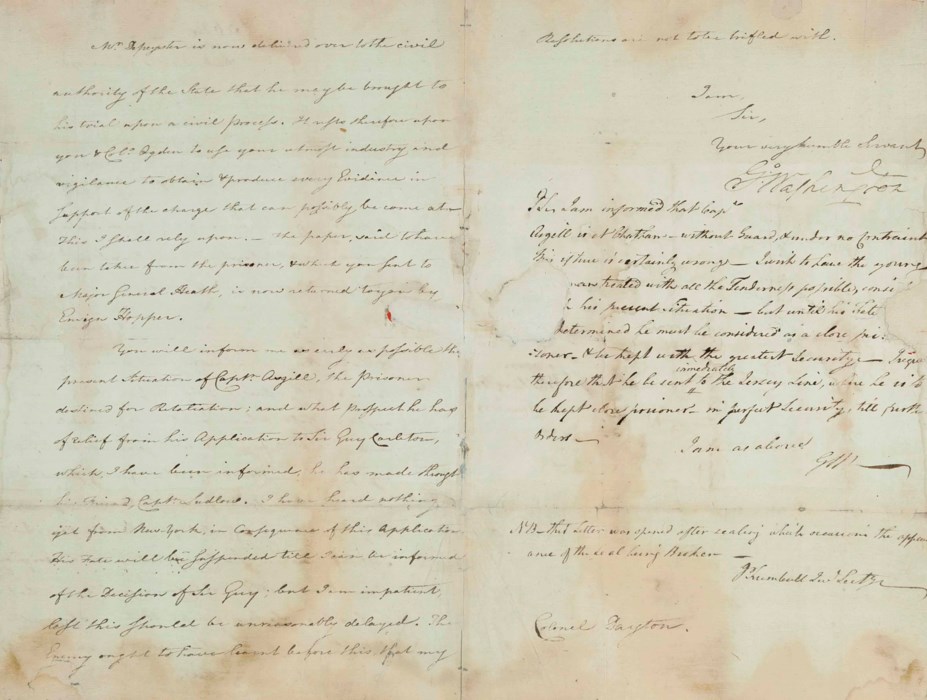 Mr. Depeyster is now delivered over to the civil
authority of the State that he may be brought to
his trial upon a civil process. It rests therefore upon
you & Colo. Ogden to use your utmost industry and
vigilance to obtain & produce every Evidence in
support of the charge that can possibly be come at
This I shall rely upon. — The paper, said to have
been taken from the prisoner, & which you sent to
Major General Heath, is now returned to you by
Ensign Hopper.
You will inform me as early as possible the
present situation of Capt. Asgill, the Prisoner
destined for Retaliation; and what Prospect he has
of relief from his Application to Sir Guy Carleton,
which I have been informed, he has made through
his Friend, Capt. Ludlow. I have heard nothing
yet from New-York, in Consequence of this Application
His Fate will be suspended till I can be informed
of the Decision of Sir Guy; but I am impatient,
lest this should be unreasonably delayed. The
Enemy ought to have learnt before this, that my
Resolutions are not to be trifled with.
I am,
Sir,
Your very humble Servant
Go Washington
P.S. I am informed that Capt
Asgell is at Chatham — without Guard, & under no Constraint
This if true is certainly wrong — I wish to have the young
man treated with all the Tenderness possible, consi
his present situation — but until his Fate
determined he must be considered as a close pri-
soner — & be kept with the greatest Security — I request
therefore that he be sent immediately to the Jersey Line, where he is to
be kept close prisoner — in perfect Security, till further
orders —
I am as above
GW
NB. — That Letter was opened after sealing which occasions the appear
ance of the seal being Broken —
J Trumbull Jun Secty
Colonel Dayton.